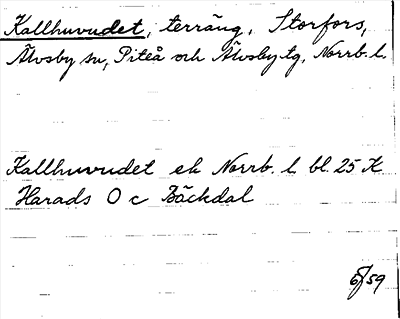 Kallhuvudet, terräng, Storfors,
Älvsby sn, Piteå och Älvsby tg, Norrb. l.
Kallhuvudet ek Norrb. l bl. 25 K
Harads O c Bäckdal
6/59